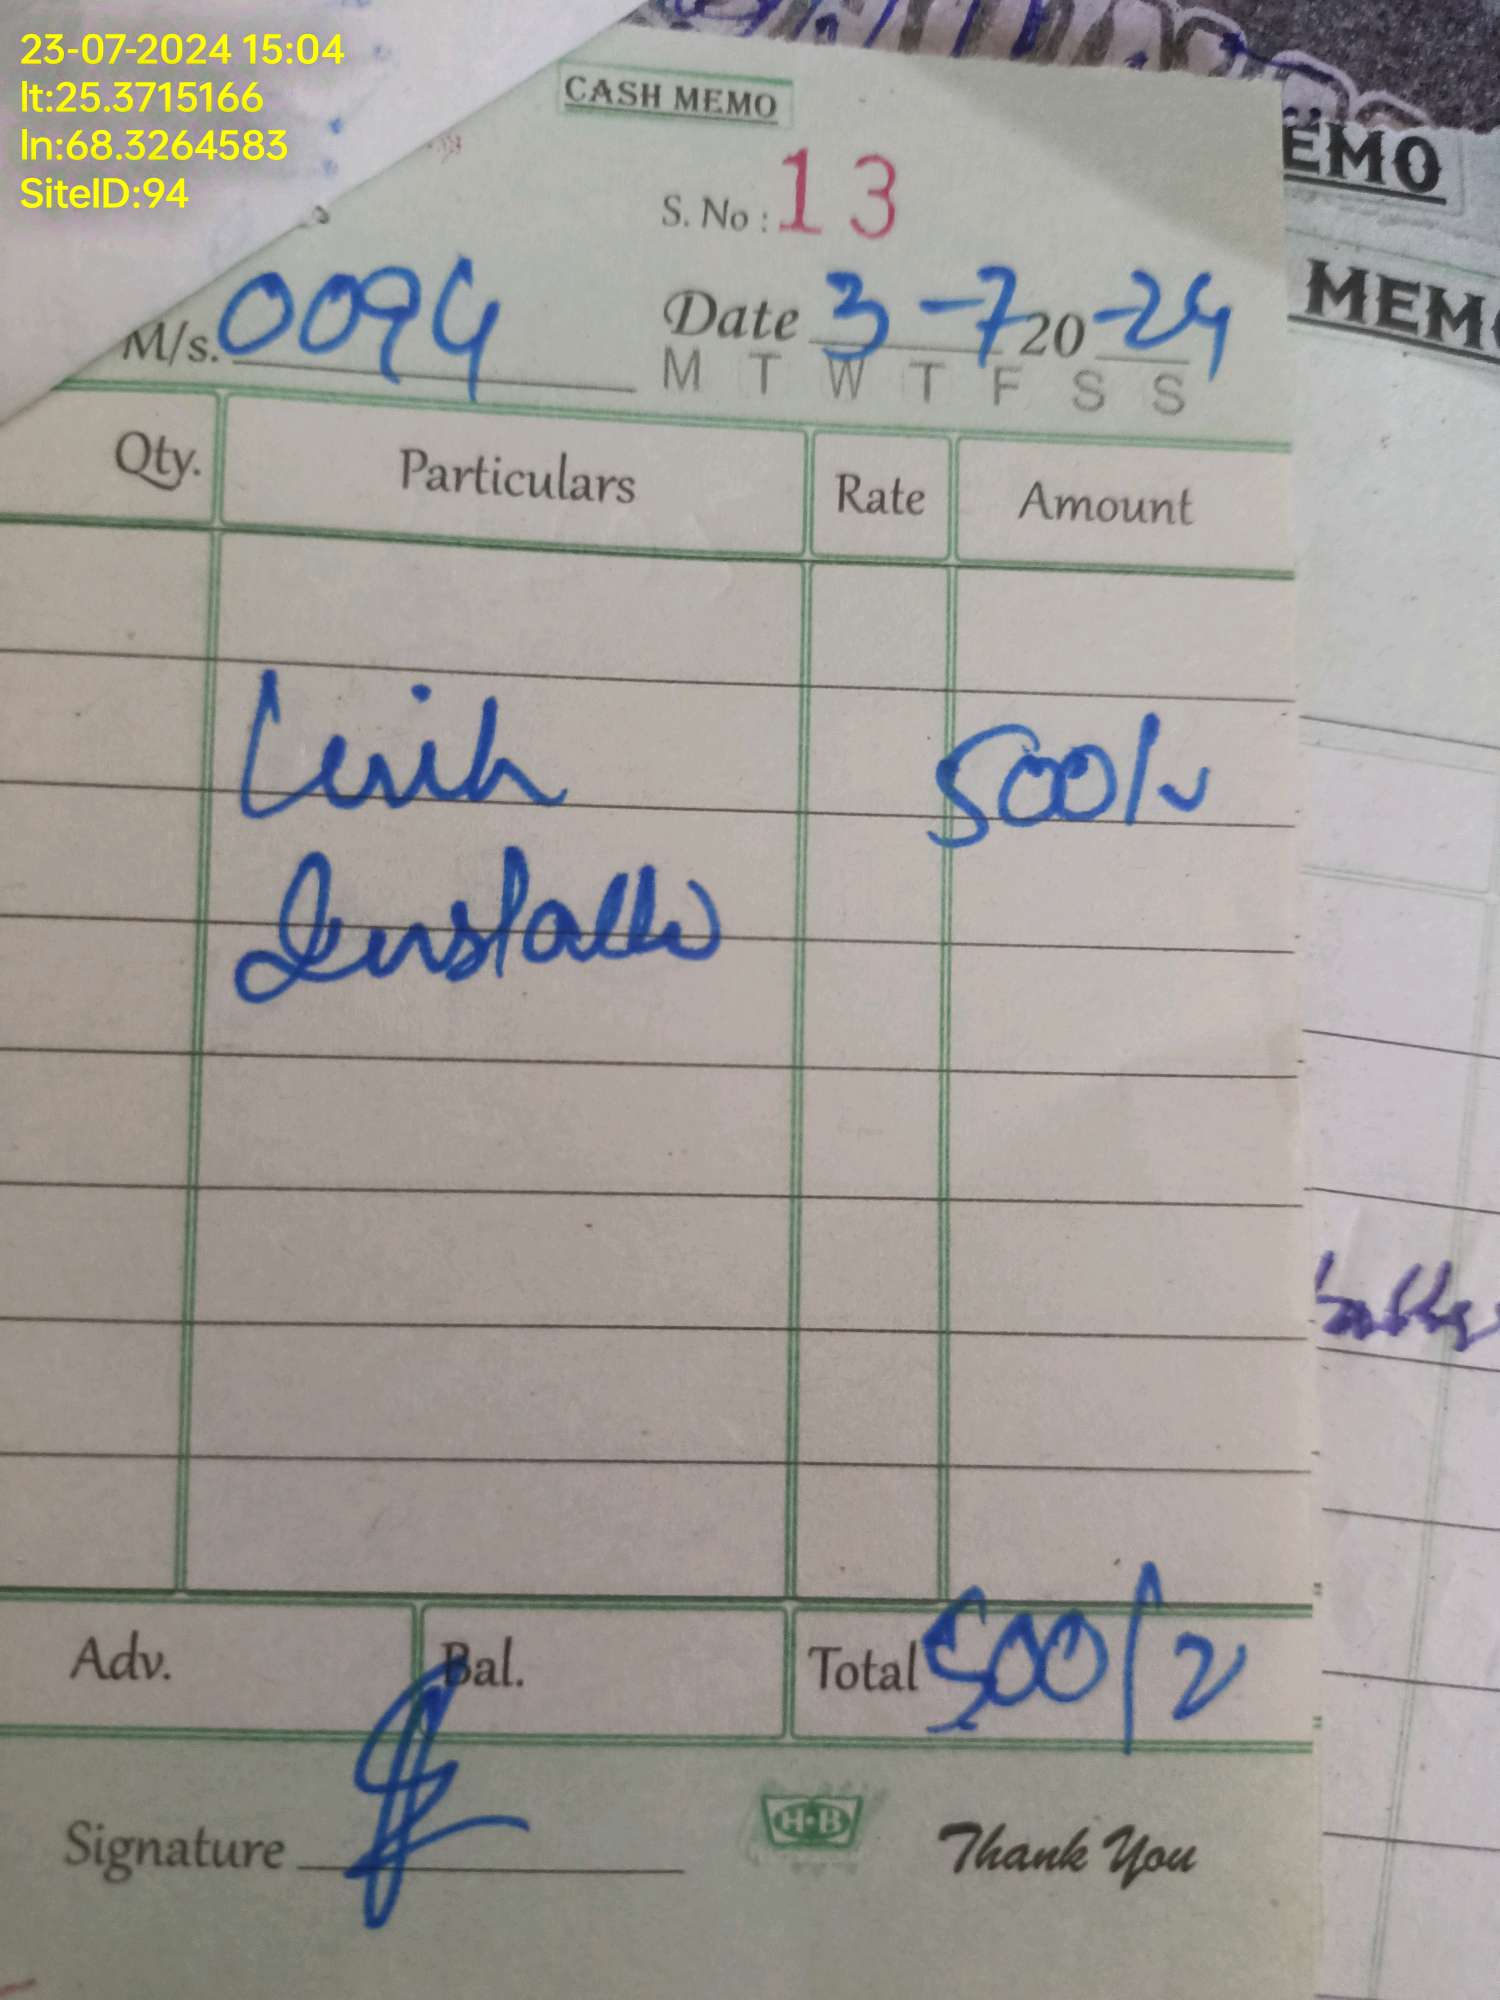 23-07-2024 15:04
lt:25.3715166
ln:68.3264583
SiteID:94
CASH MEMO
EMO
S. No : 13
MEMO
M/s. 0094 Date 3-7 20-24
M T W T F S S
Qty. Particulars Rate Amount
500/-
Total 500/-
Adv. Bal.
Signature
H·B
Thank You